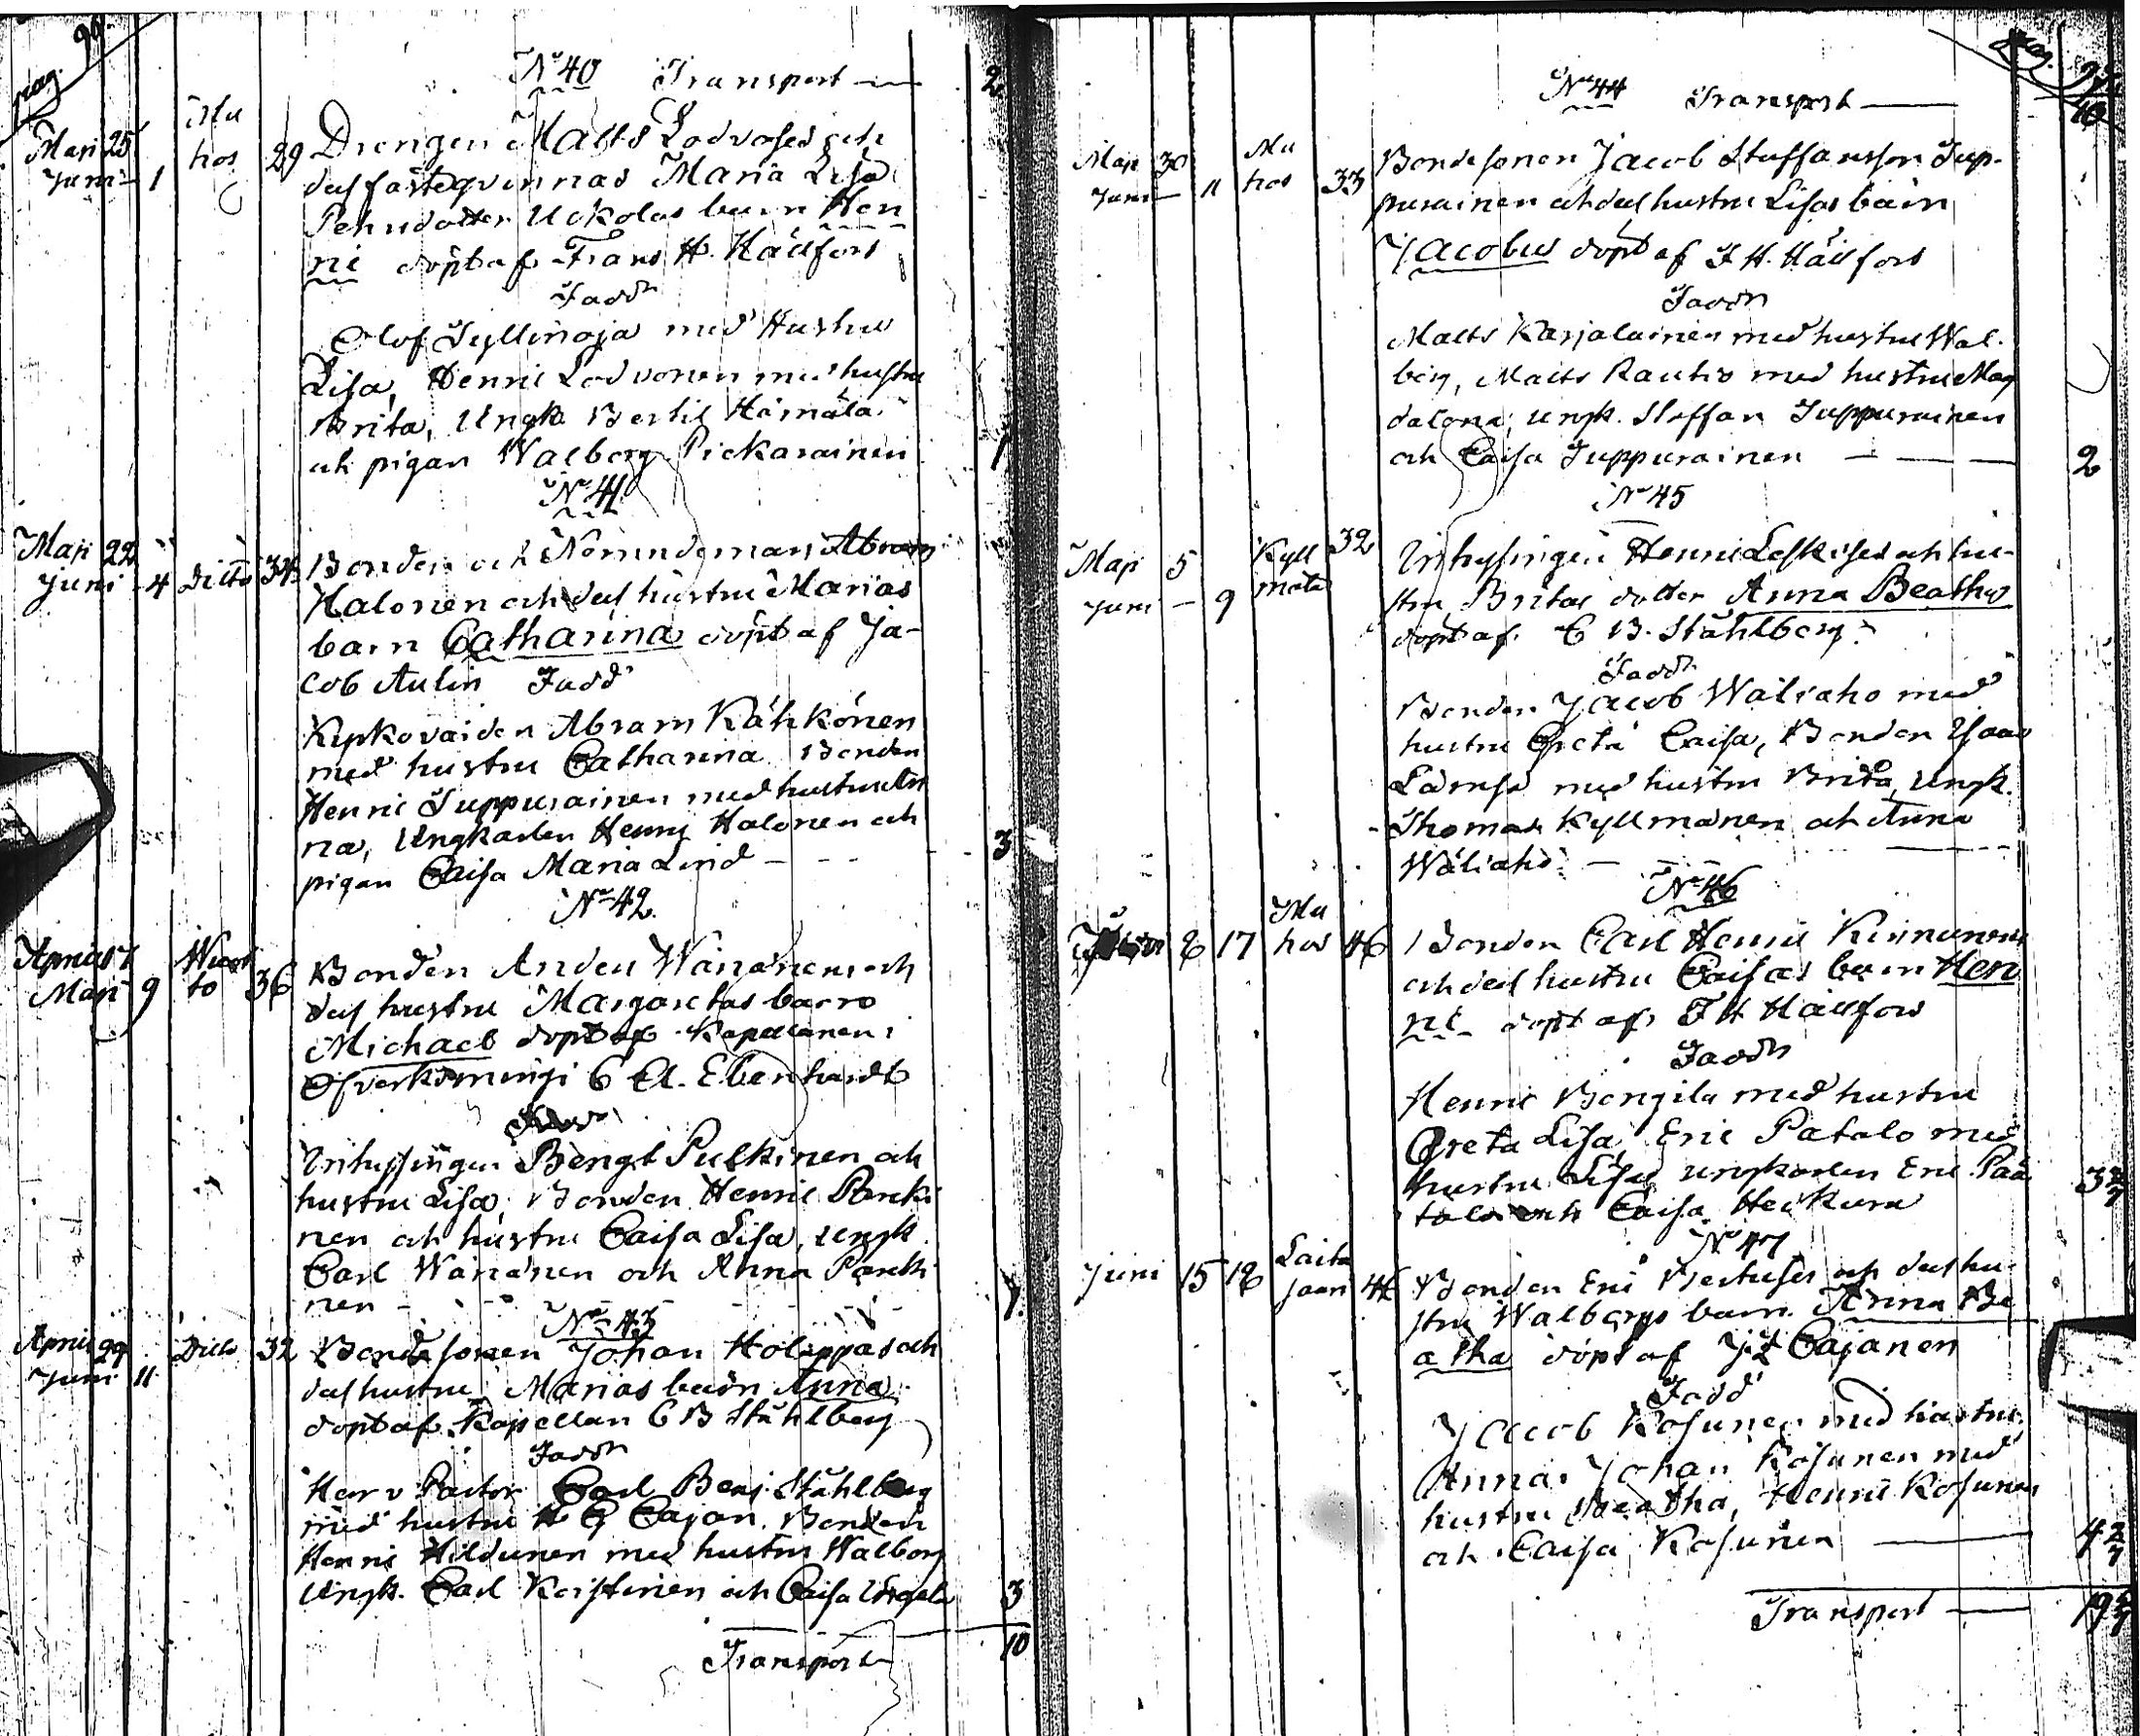 pag. 90.
N:o 40 Transport — 2
Maji 25 Mu
Juni — 1 hos 29 Drengen Matts Lodvoses och
dess fästeqvinnas Maria Lisa
Pehrsdotter Uckolas barn Hen
ni döpt af Frans H. Hällfors
Fadd:r
Olof Tyllinoja med Hustru
Lisa, Henric Lodvonen med hustru
Brita, Ungk. Bertil Hämälä
och pigan Walborg Pickarainen 1
N:o 41.
Maji 22
Juni - 4 Ditto 34 Bonden och Nämndeman Abram
Halonen och dess hustru Marias
barn Catharina döpt af Ja-
cob Aulin Fadd:
Kyrkovärden Abram Kähkönen
med hustru Catharina Bonden
Henric Juppurainen med hustru An
na, Ungkarlen Henric Halonen och
pigan Caisa Maria Lind — 3
N:o 42.
April 7 Wuot
Maji 9 to 36 Bonden Anders Wänänens och
dess hustru Margaretas barn
Michael döpt af Kapellanen i
Öfverkiminge C A. Eberhardt
Fadd:r
Inhyssingen Bengt Pulkinen och
hustru Lisa, Bonden Henric Parcki
nen och hustru Caisa Lisa, ungk.
Carl Wänänen och Anna Parcki
nen - 1.
N:o 43
April 29
Juni 11 Ditto 32 Bondesonen Johan Holappas och
dess hustru Marias barn Anna
döpt af Kapellan C B Ståhlberg
Fadd:r
Herr Pastor Carl Benj. Ståhlberg
med hustru H G Cajan. Bonden
Henric Hildunen med hustru Walborg
Ungk. Carl Keistinen och Caisa 3
Transport 10
pag. 91
N:o 44 Transport — 10
Maji 30 Mu
Juni — 11 hos 33 Bondesonen Jacob Staffansson Jup-
purainen och dess hustru Lisas barn
Jacobus döpt af F H. Hällfors
Fadd:r
Matts Karjalainen med hustru Wal-
borg, Matts Rautio med hustru Mag
dalena, ungk. Staffan Juppurainen
och Caisa Juppurainen — 2
N:o 45
Maji 5 Kyll 32 Inhyssingen Henric Leskises och hu-
Juni — 9 mälä stru Britas dotter Anna Beatha
döpt af C B. Ståhlberg.
Fadd:r
Bonden Jacob Wäliaho med
hustru Greta Caisa, Bonden Isaac
Lämsä med hustru Brita, Ungk.
Thomas Kyllmänen och Anna
Wäliaho —
N:o 46
Mu
6 17 hos 46 Bonden Carl Henric Kinnunens
och dess hustru Caisas barn Hen
ric döpt af F H Hällfors
Fadd:r
Henric Bongila med hustru
Greta Lisa Eric Patalo med
hustru Lisa ungkarlen Eric Paa
talo och Caisa Heikura
N:o 47
Juni 15 18 Laita
saari Bonden Eric och dess hu-
stru Walborgs barn Anna Be
atha döpt af Cajanen
Fadd:
Jacob Kosunen med hustru
Anna, Johan Kosunen med
hustru Beatha, Henric Kosunen
och Caisa Kosunen —
Transport —